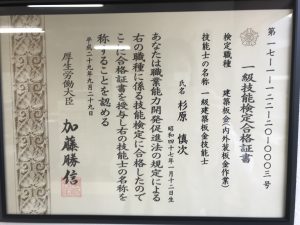 第一七-一-一二二-二〇-〇〇〇三号
一級技能検定合格証書
検定職種
建築板金(内外装板金作業)
技能士の名称 一級建築板金技能士
氏名 杉原 慎次
昭和四十七年一月十二日生
あなたは職業能力開発促進法の規定による
右の職種に係る技能検定に合格したので
ここに合格証書を授与し右の技能士の名称を
称することを認める
平成二十九年九月二十九日
厚生労働大臣 加藤勝信